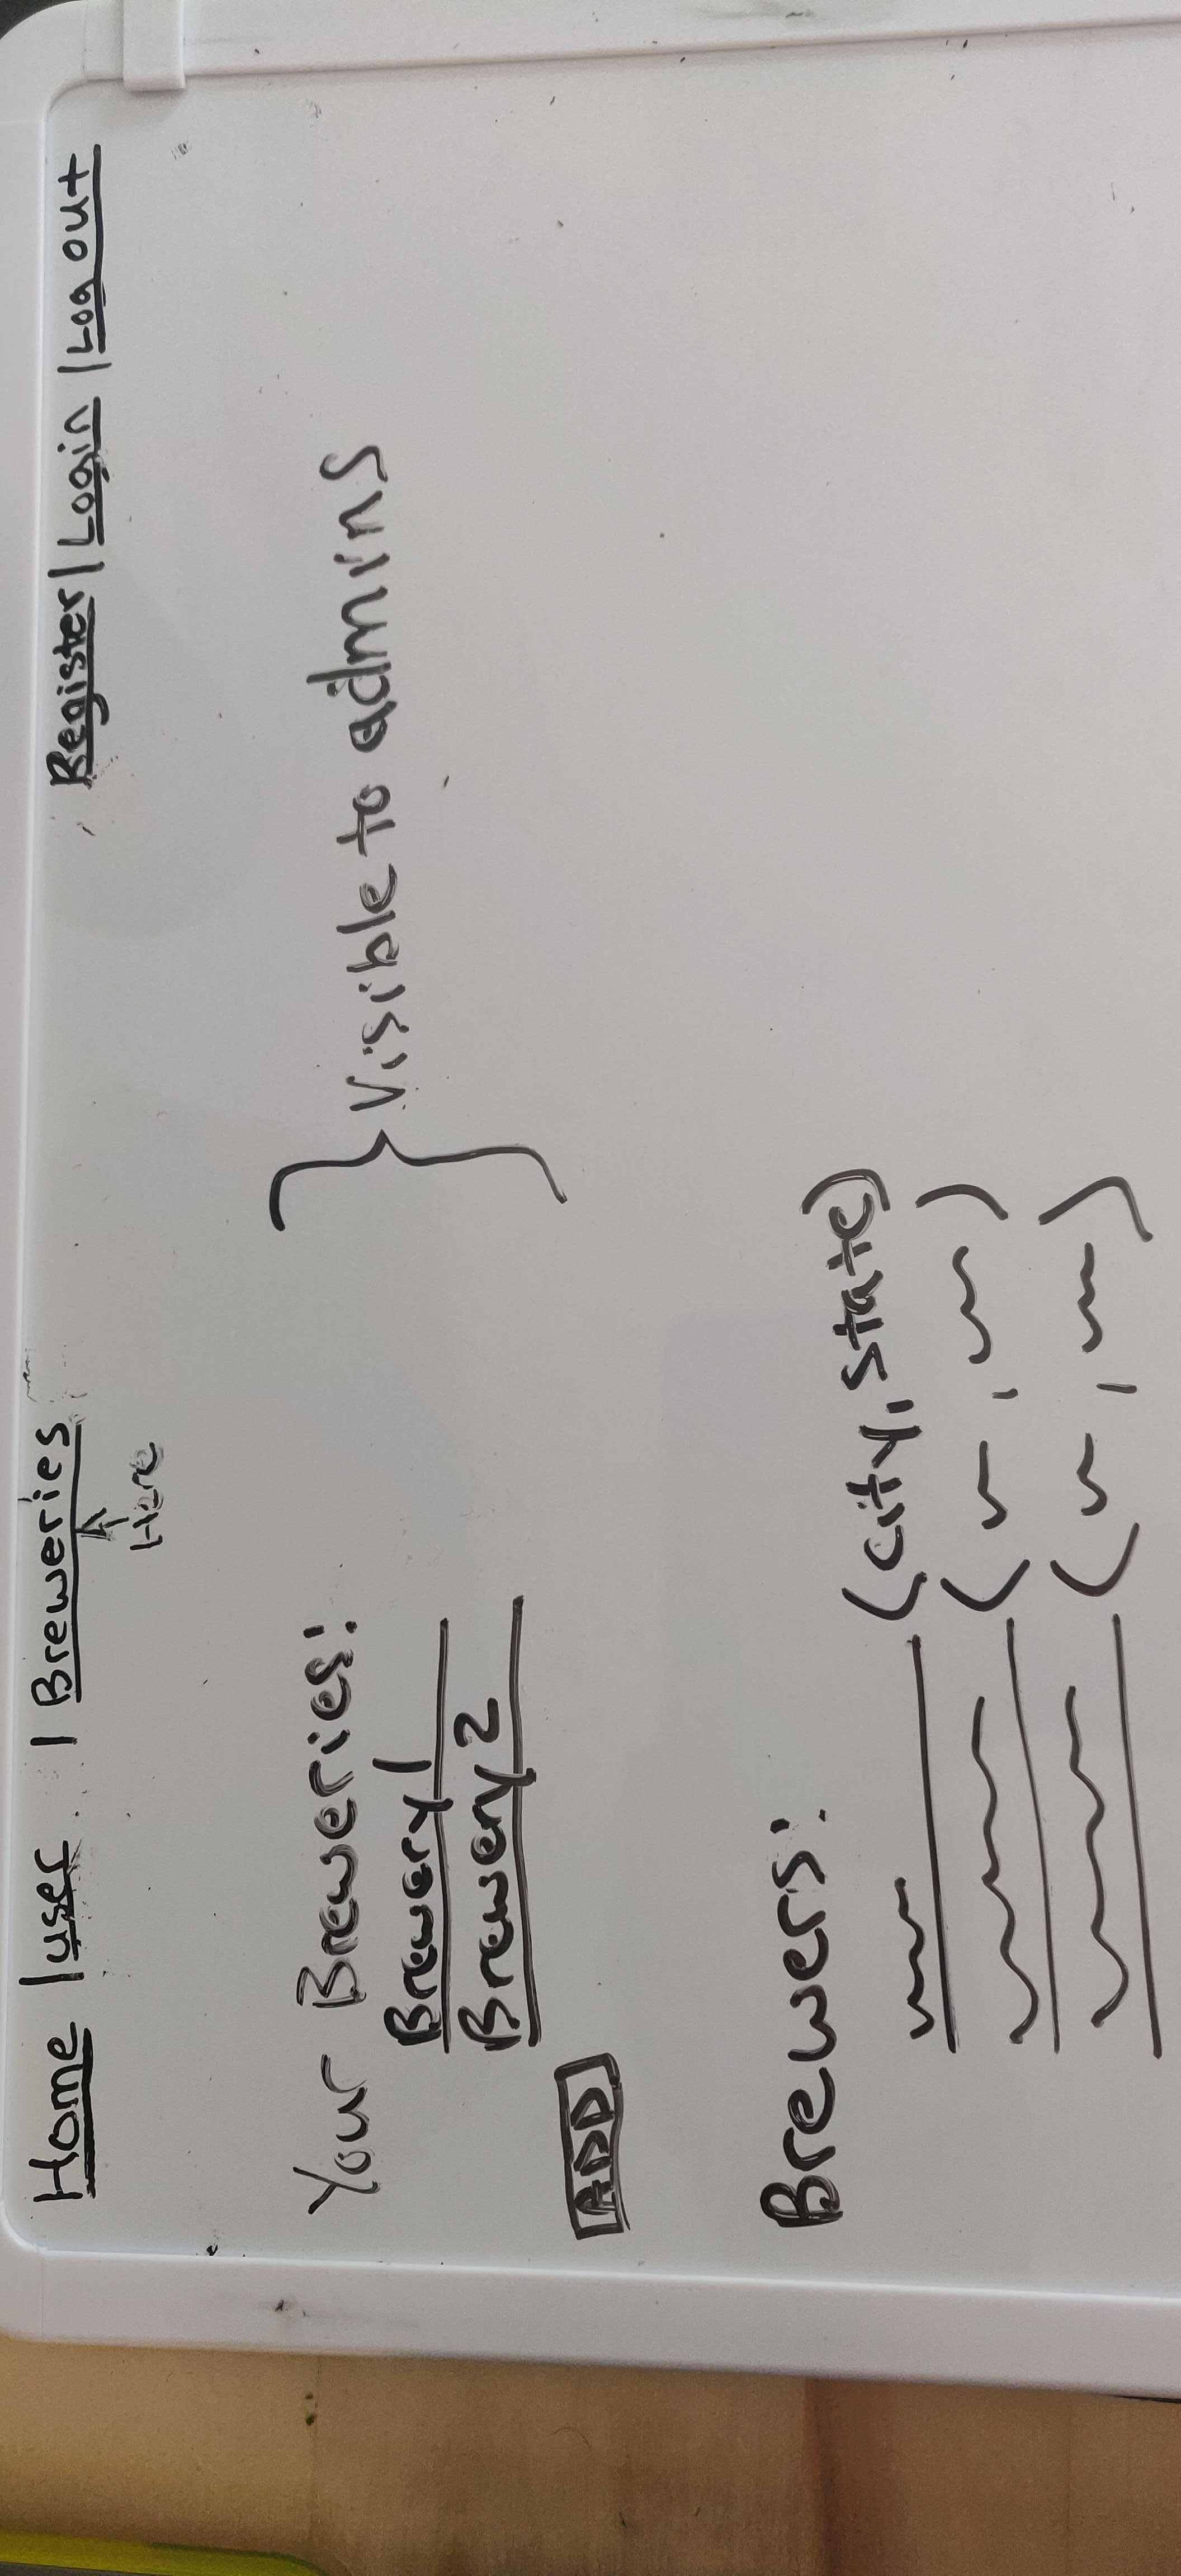 Home | user | Breweries Register | Login | Log out
Here
Your Breweries:
Brewery 1
Brewery 2
Visible to admins
ADD
Brewers:
(City, State)
( , )
( , )